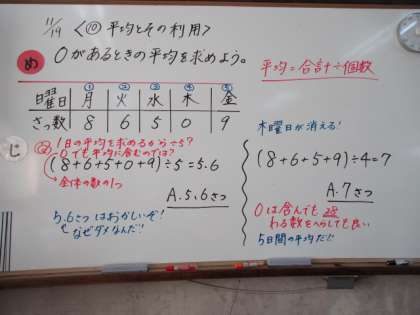 11/19 <⑩平均とその利用>
め 0があるときの平均を求めよう。
平均=合計÷個数
① ② ③ ④ ⑤
曜日 月 火 水 木 金
さっ数 8 6 5 0 9
木曜日が消える!
じ
1日の平均を求めるから÷5?
0でも平均に含むのでは?
(8+6+5+0+9)÷5=5.6
全体の数の1つ
A.5.6さつ
5.6さつはおかしいぞ!
なぜダメなんだ!
(8+6+5+9)÷4=7
A.7さつ
0は含んでも
わる数をへらしても良い
5日間の平均だ!